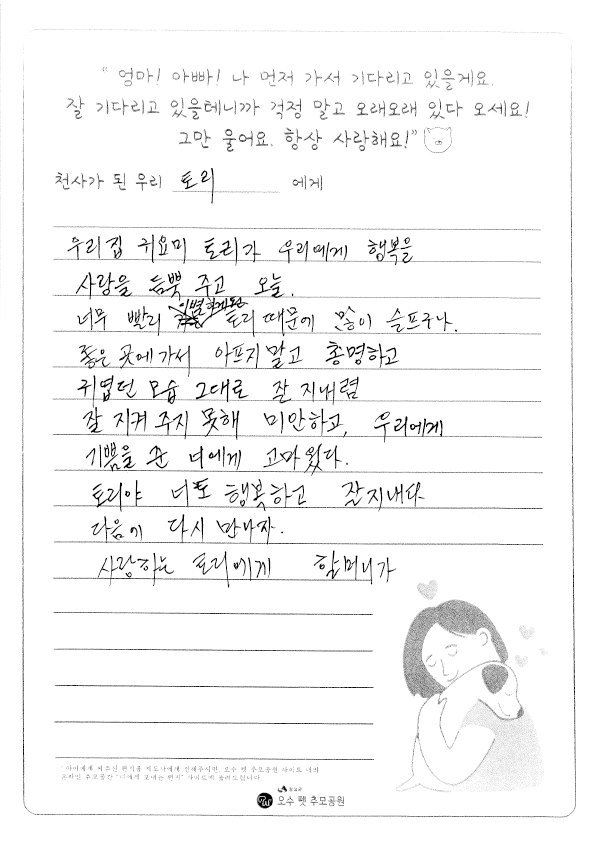 " 엄마! 아빠! 나 먼저 가서 기다리고 있을게요.
잘 기다리고 있을테니까 걱정 말고 오래오래 있다 오세요!
그만 울어요. 항상 사랑해요!"
천사가 된 우리 토리 에게
우리집 귀요미 토리가 우리에게 행복을
사랑을 듬뿍 주고 오늘.
너무 빨리 이별하게된 토리 때문에 많이 슬프구나.
좋은 곳에 가서 아프지말고 총명하고
귀엽던 모습 그대로 잘 지내렴
잘 지켜 주지 못해 미안하고, 우리에게
기쁨을 준 너에게 고마웠다.
토리야 너도 행복하고 잘지내다
다음에 다시 만나자.
사랑하는 토리에게 할머니가
오수 펫 추모공원